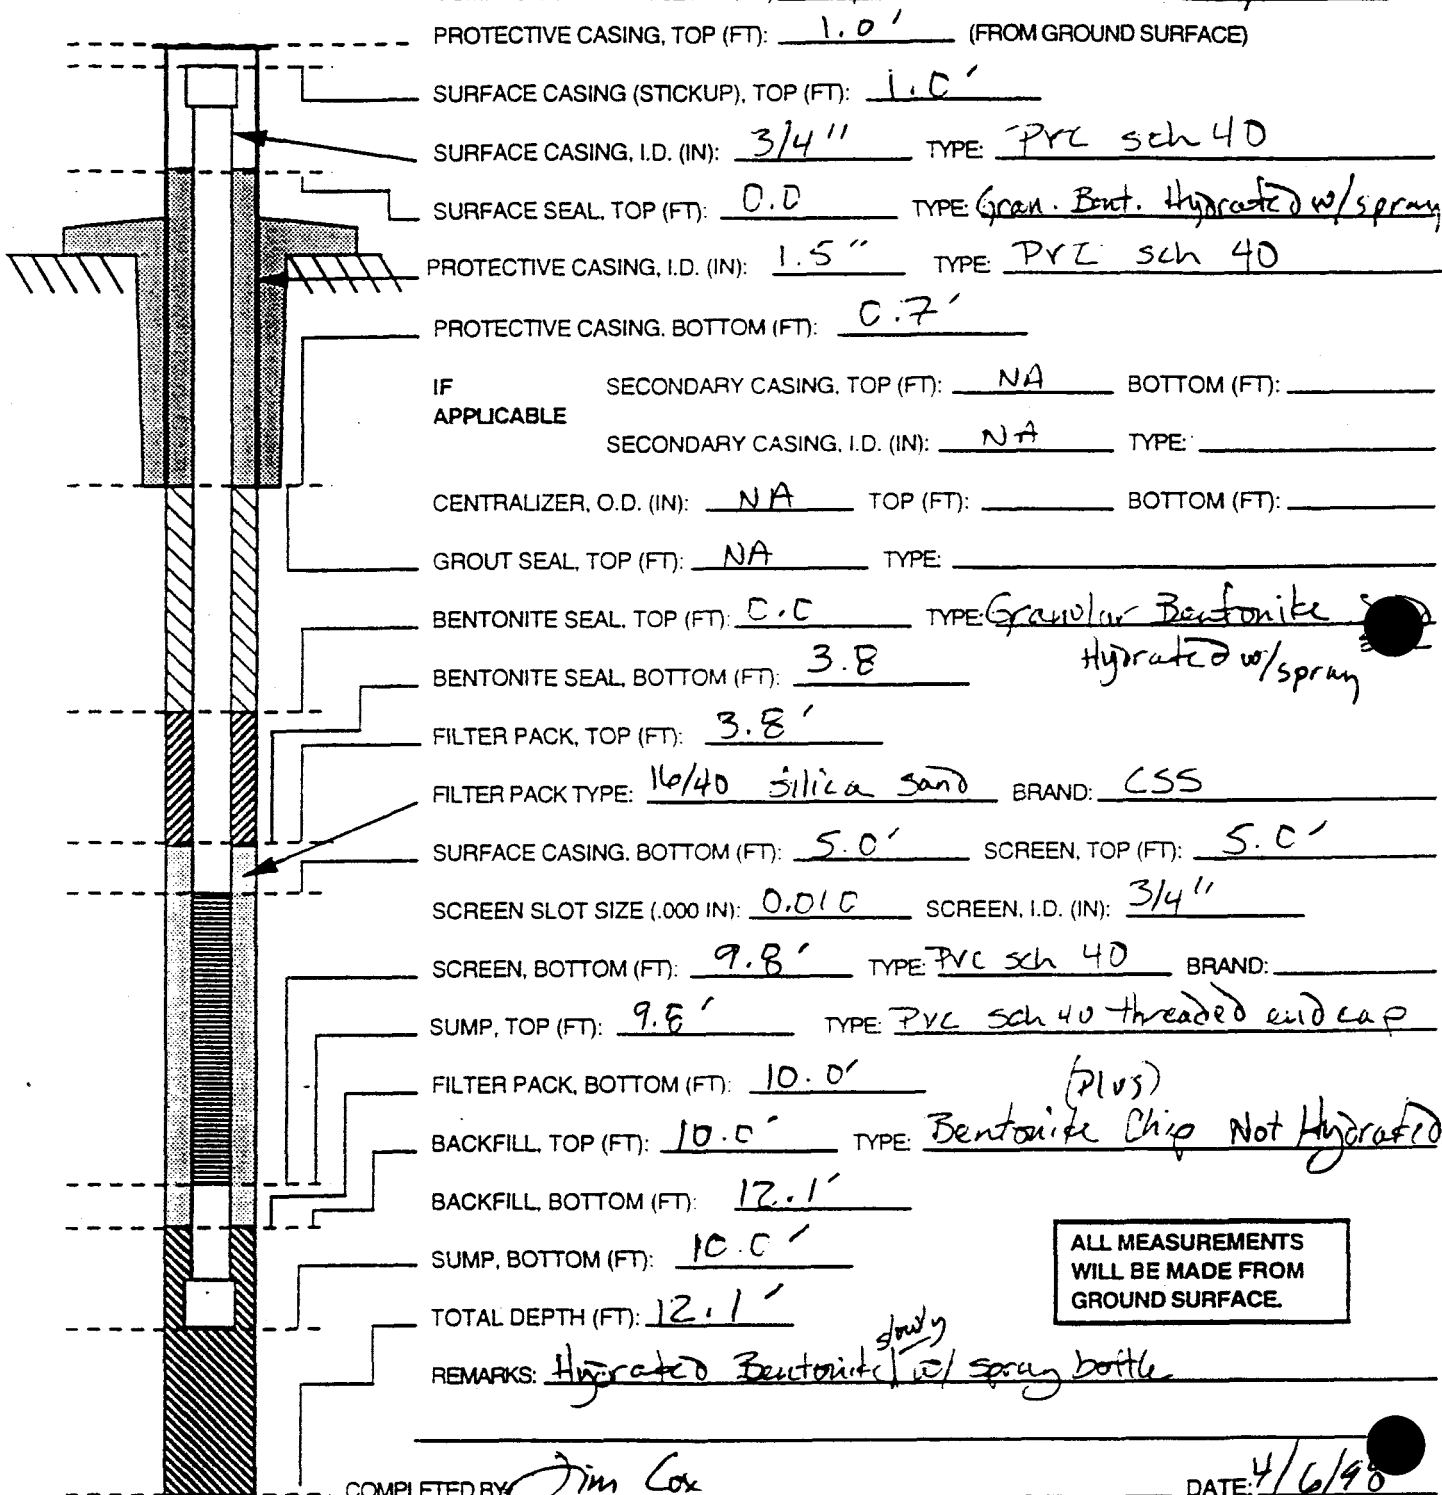 PROTECTIVE CASING, TOP (FT): 1.0' (FROM GROUND SURFACE)
SURFACE CASING (STICKUP), TOP (FT): 1.0'
SURFACE CASING, I.D. (IN): 3/4" TYPE: PVC sch 40
SURFACE SEAL, TOP (FT): 0.0 TYPE: Gran. Bent. Hydrated w/spray
PROTECTIVE CASING, I.D. (IN): 1.5" TYPE: PVC sch 40
PROTECTIVE CASING, BOTTOM (FT): 0.7'
IF APPLICABLE
SECONDARY CASING, TOP (FT): NA BOTTOM (FT):
SECONDARY CASING, I.D. (IN): NA TYPE:
CENTRALIZER, O.D. (IN): NA TOP (FT): BOTTOM (FT):
GROUT SEAL, TOP (FT): NA TYPE:
BENTONITE SEAL, TOP (FT): 0.0 TYPE: Granular Bentonite
Hydrated w/spray
BENTONITE SEAL, BOTTOM (FT): 3.8
FILTER PACK, TOP (FT): 3.8'
FILTER PACK TYPE: 16/40 silica sand BRAND: CSS
SURFACE CASING, BOTTOM (FT): 5.0' SCREEN, TOP (FT): 5.0'
SCREEN SLOT SIZE (.000 IN): 0.010 SCREEN, I.D. (IN): 3/4"
SCREEN, BOTTOM (FT): 9.8' TYPE: PVC sch 40 BRAND:
SUMP, TOP (FT): 9.8' TYPE: PVC sch 40 threaded end cap
(Plug)
FILTER PACK, BOTTOM (FT): 10.0'
BACKFILL, TOP (FT): 10.0' TYPE: Bentonite Chip Not Hydrated
BACKFILL, BOTTOM (FT): 12.1'
SUMP, BOTTOM (FT): 10.0'
ALL MEASUREMENTS
WILL BE MADE FROM
GROUND SURFACE.
TOTAL DEPTH (FT): 12.1'
REMARKS: Hydrated Bentonite slowly w/ spray bottle
COMPLETED BY: Jim Cox DATE: 4/6/98